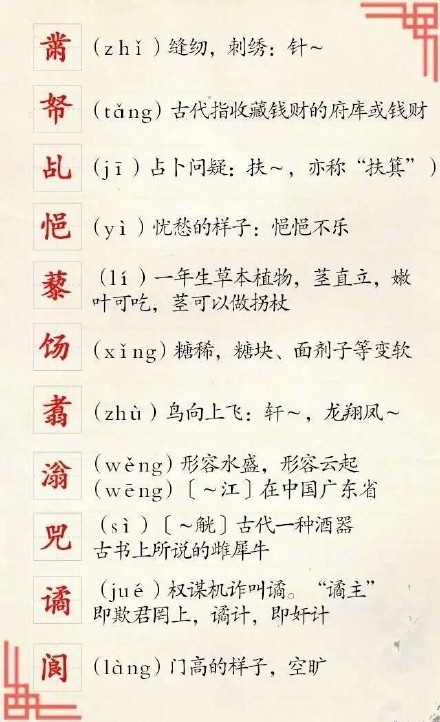 黹 (zhǐ) 缝纫，刺绣：针～
帑 (tǎng) 古代指收藏钱财的府库或钱财
乩 (jī) 占卜问疑：扶～，亦称“扶箕”)
悒 (yì) 忧愁的样子：悒悒不乐
藜 (lí) 一年生草本植物，茎直立，嫩
叶可吃，茎可以做拐杖
饧 (xíng) 糖稀，糖块、面剂子等变软
翥 (zhù) 鸟向上飞：轩～，龙翔凤～
滃 (wěng) 形容水盛，形容云起
(wēng)〔～江〕在中国广东省
兕 (sì)〔～觥〕古代一种酒器
古书上所说的雌犀牛
谲 (jué) 权谋机诈叫谲。“谲主”
即欺君罔上，谲计，即奸计
阆 (làng) 门高的样子，空旷